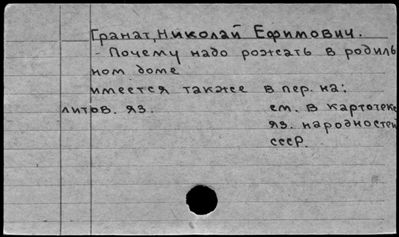 Гранат, Николай Ефимович.
- Почему надо рожать в родиль
ном доме
имеется также в пер. на:
литов. яз. см. в картотеке
яз. народностей
СССР.